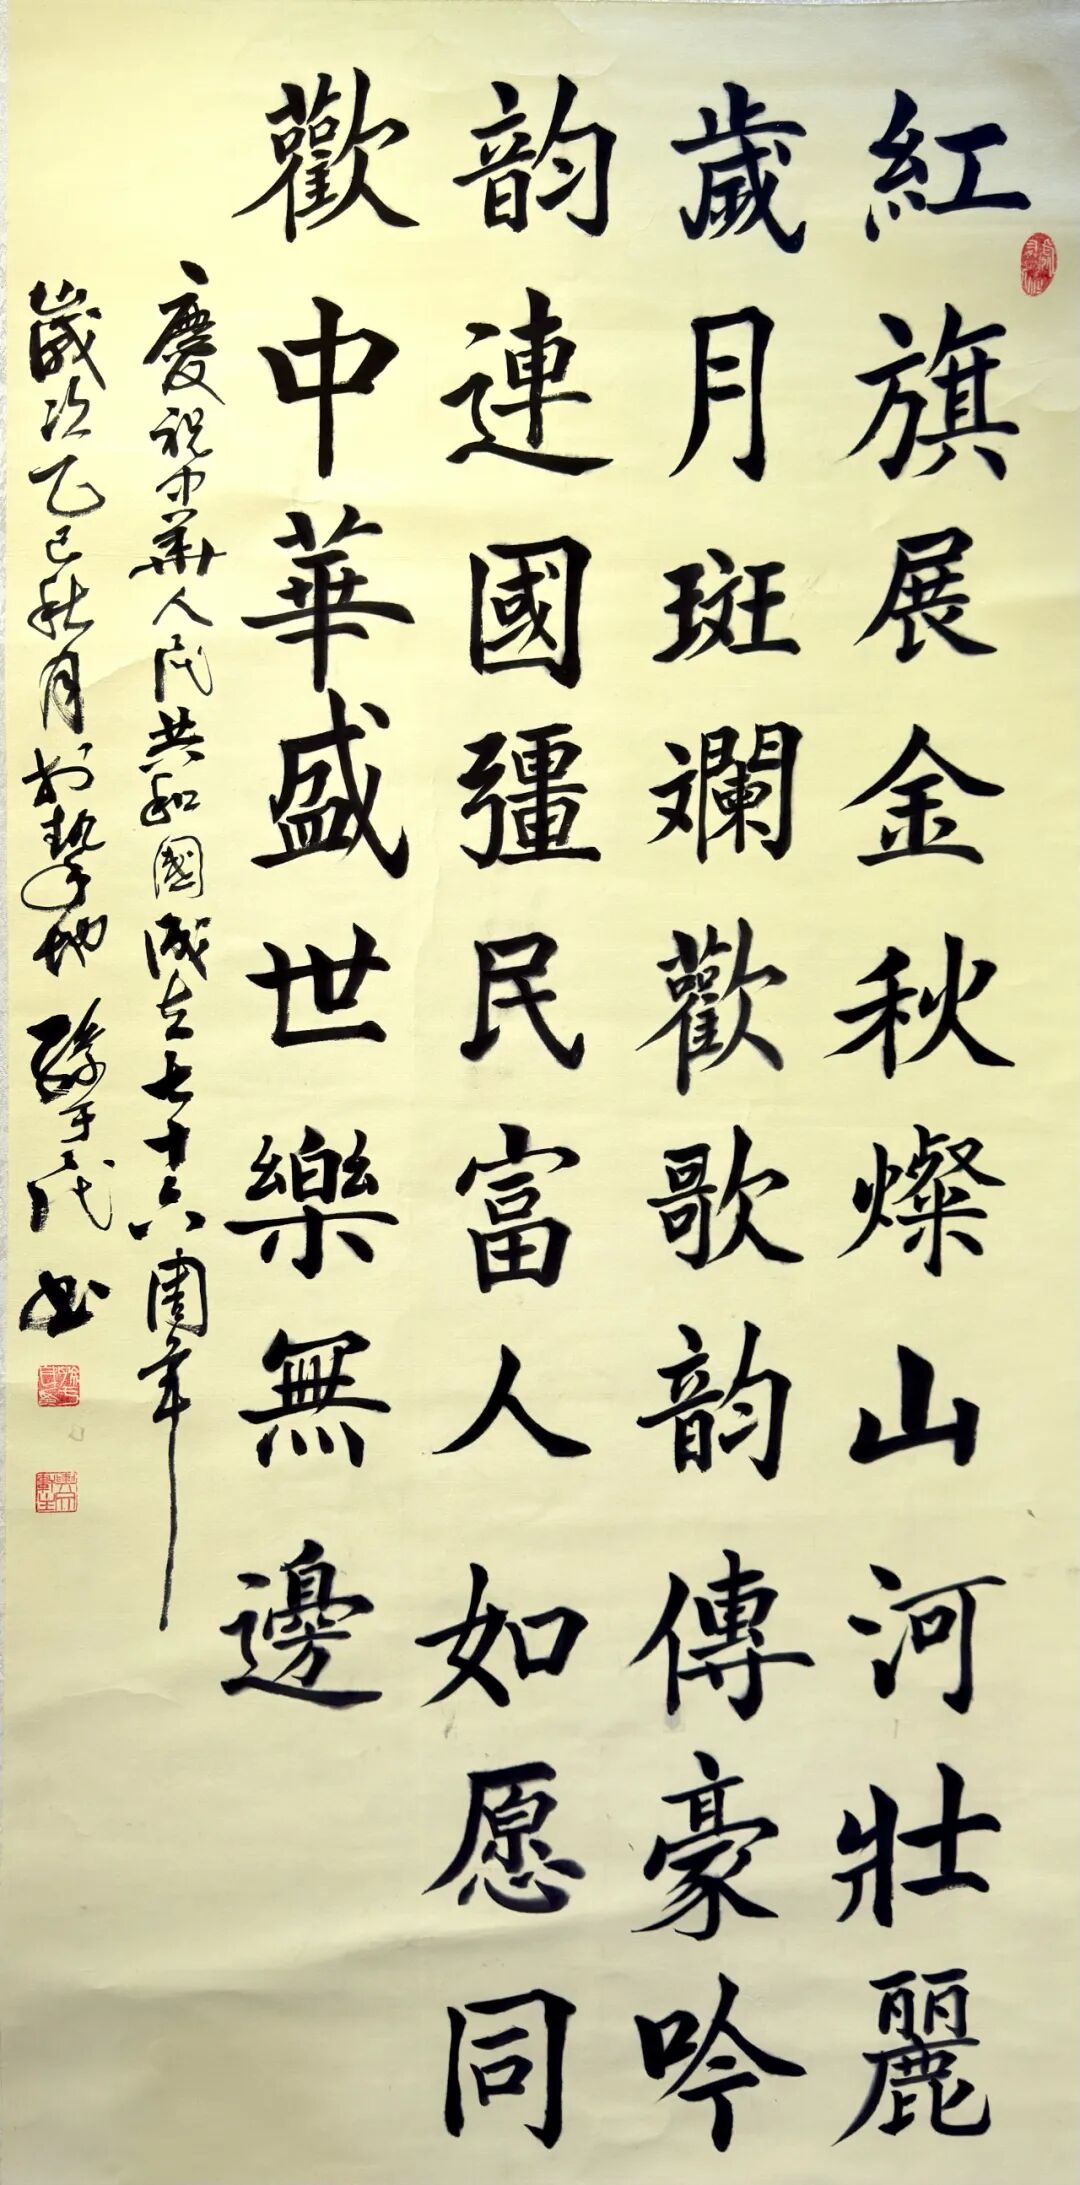 紅旗展金秋燦山河壯麗
歲月斑斕歡歌韵傳豪吟
韵連國彊民富人如愿同
歡中華盛世樂無邊
慶祝中華人民共和國成立七十六周年
歲次乙巳秋月於摯地 孫玉代書